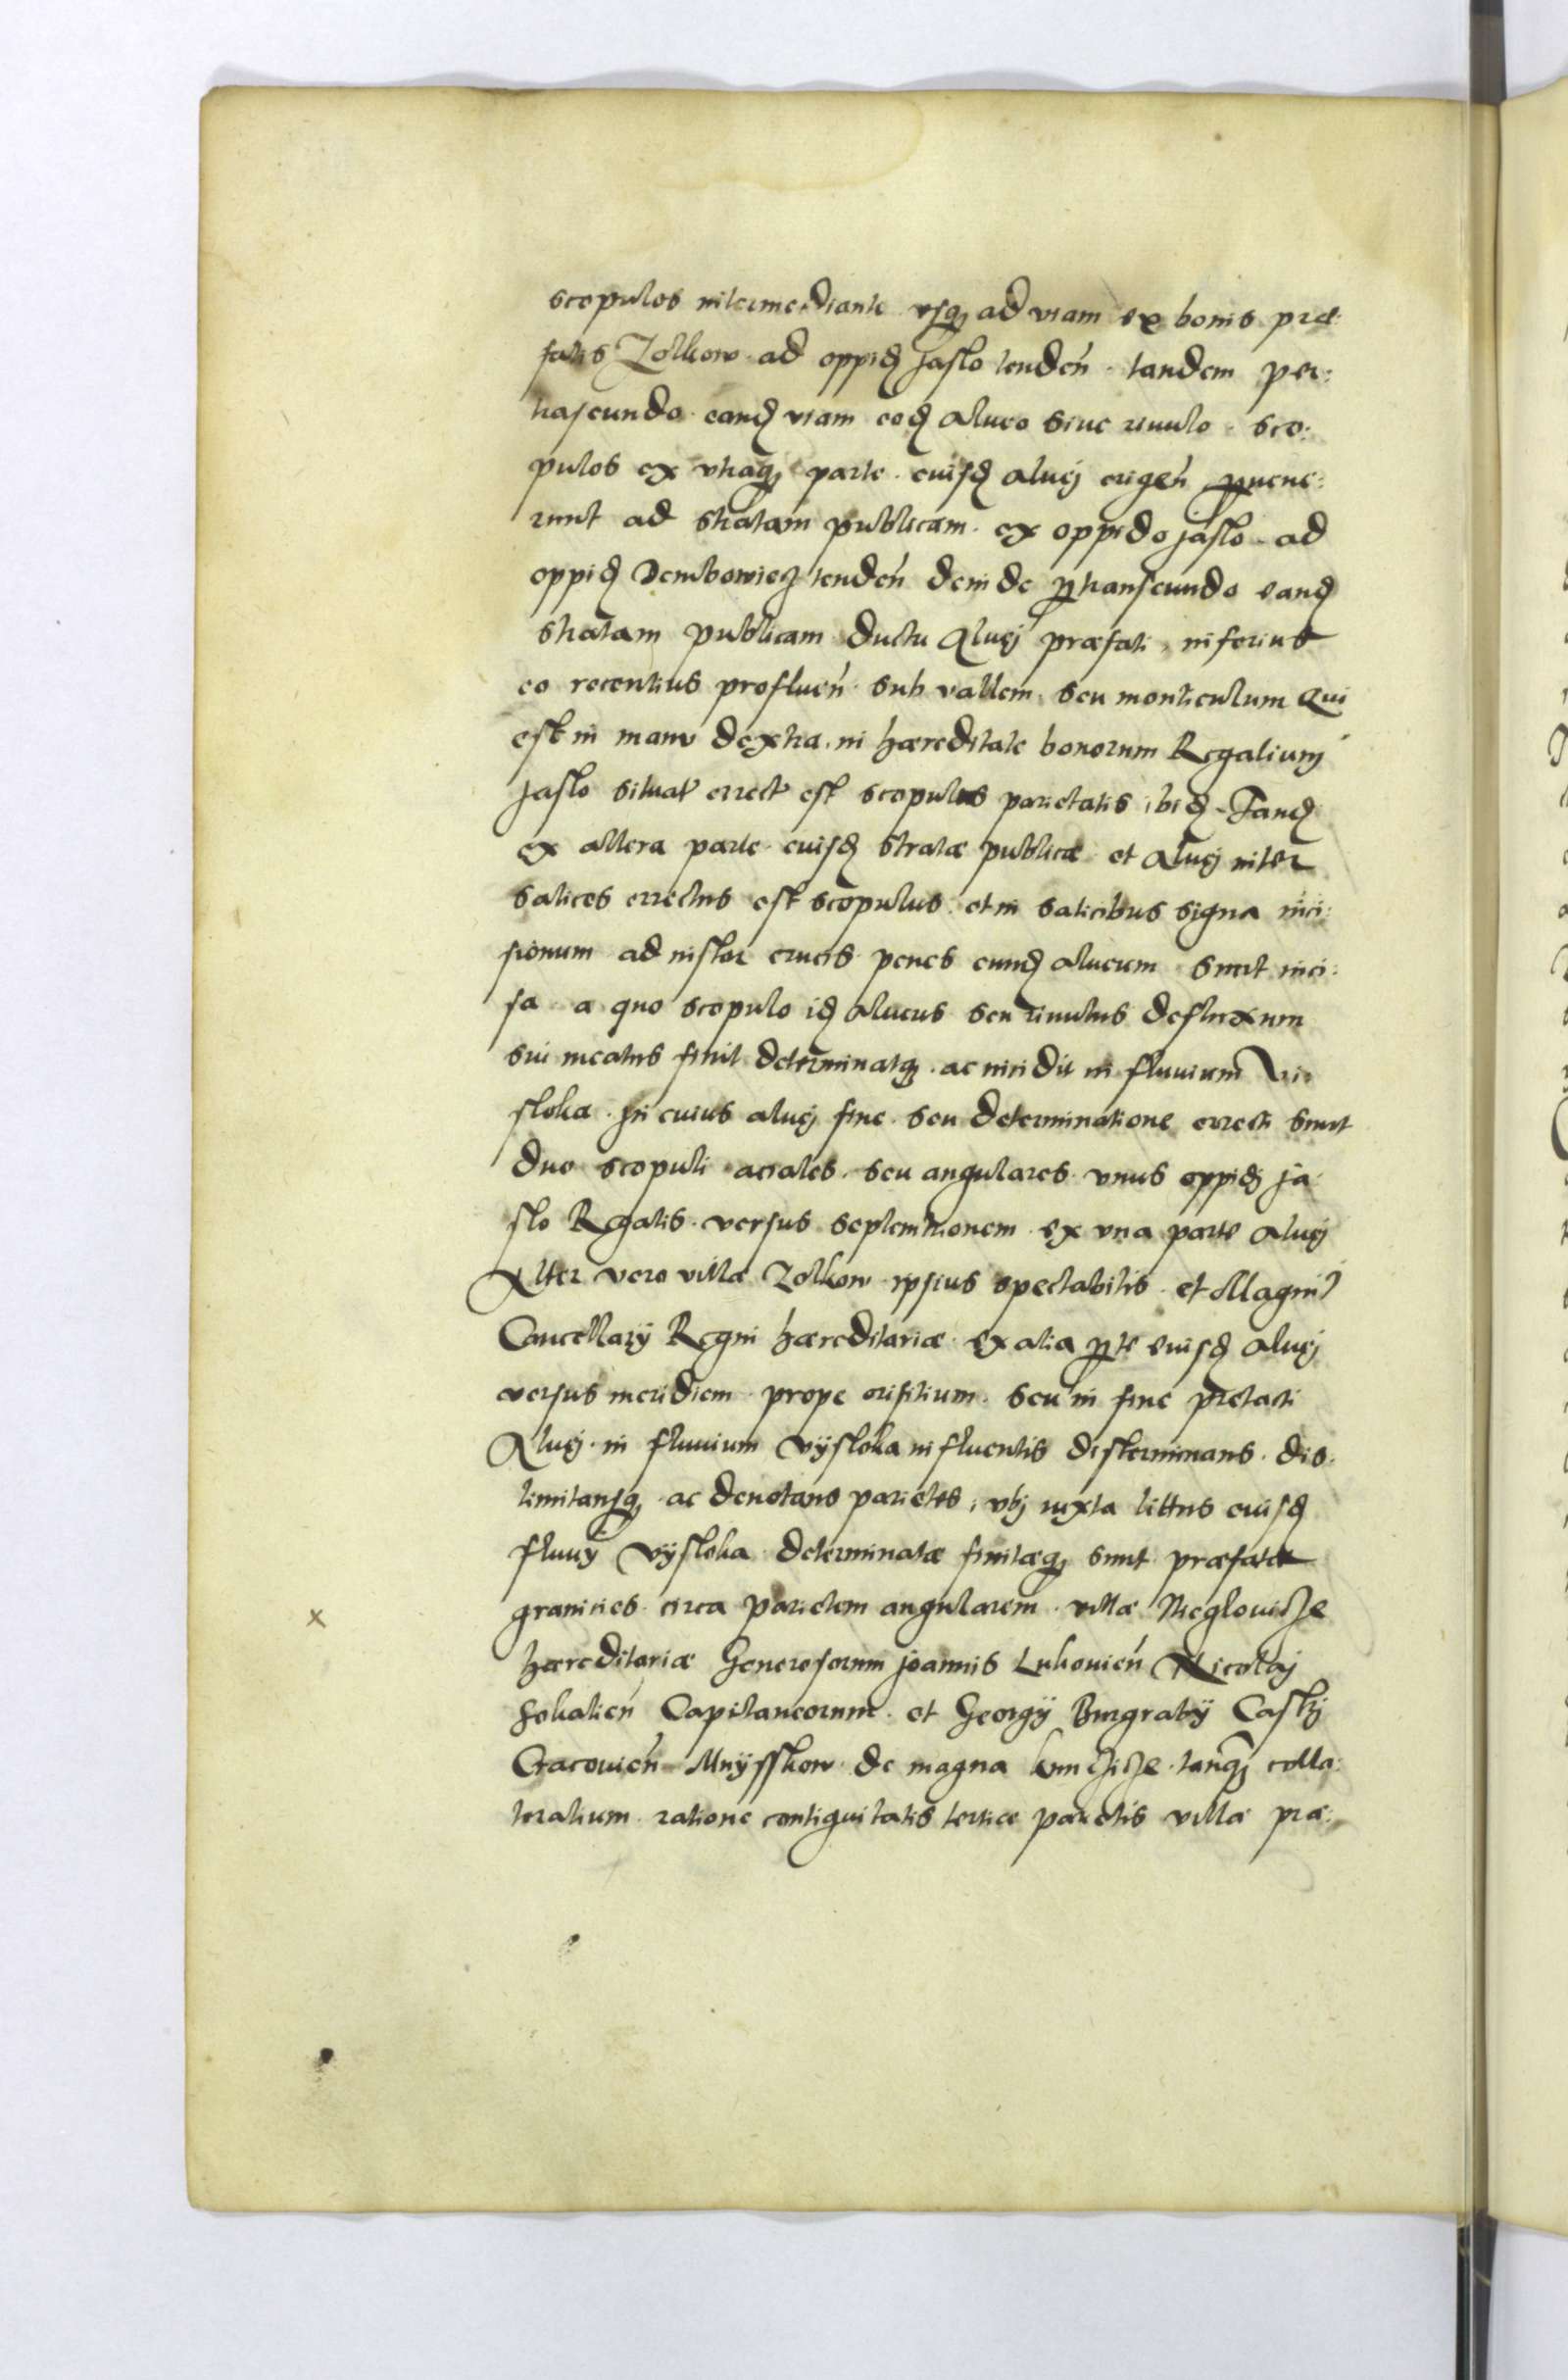 scopulos intermediante vsq₃ ad viam ex bonis præ:
fatis Zolkow ad oppid₃ Jaslo tendeń tandem per:
traseundo eand₃ viam eod₃ alueo siue riuulo sco:
pulos ex vtraq₃ parte euisd₃ aluej erigeń ꝑuene:
runt ad stratam publicam ex oppido Jaslo ad
oppid₃ Dembowiecz tendeń deinde ꝑtranseundo eand₃
stratam publicam ductu Aluej præfati inferius
eo recentius proflueń sub vallem seu monticulum Qui
est in manu dextra in hæreditate bonorum Regalium
Jaslo situat᷒ errect᷒ est scopulus parietatis ibid₃ Tand₃
ex altera parte euisd₃ stratæ publicæ et aluej inter
salices errectus est scopulus et in salicibus signa inci:
sionum ad instar crucis penes eund₃ alueum sunt inci:
sa a quo scopulo id₃ alueus seu riuulus defluxum
sui meatus finit determinatq₃ ac incidit in fluuium Vi:
sloka In cuius aluej fine seu determinatione errecti sunt
duo scopuli aciales seu angulares vnus oppid₃ Ja:
slo Regalis versus septemtrionem ex vna parte aluej
Alter vero villæ Zolkow ipsius spectabilis et Magnif᷒
Cancellarÿ Regni hæreditariæ ex alia ꝑte euisd₃ aluej
versus meridiem prope orifitium seu in fine prætacti
Aluej in fluuium Vÿsloka influentis disterminans dis:
limitansq₃ ac denotans parietes, vbj iuxta littus euisd₃
fluuÿ Vÿsloka determinatæ finitæq₃ sunt præfatæ
granicies circa parietem angularem villæ Nieglouicze
hæreditariæ Generosorum Joannis Lukouień Nicolaj
Sokalień Capitaneorum et Georgÿ Burgrabÿ Castrj
Cracouień Mnÿsskow de magna kunczicze tanq₃ colla:
teralium ratione contiguitatis tertiæ parietis villæ præ:
x